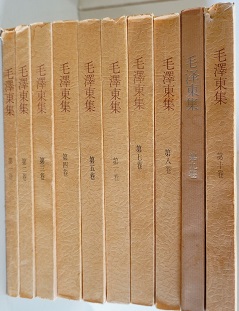 毛澤東集
第一卷
毛澤東集
第二卷
毛澤東集
第三卷
毛澤東集
第四卷
毛澤東集
第五卷
毛澤東集
毛澤東集
第七卷
毛澤東集
第八卷
毛澤東集
毛澤東集
第十卷